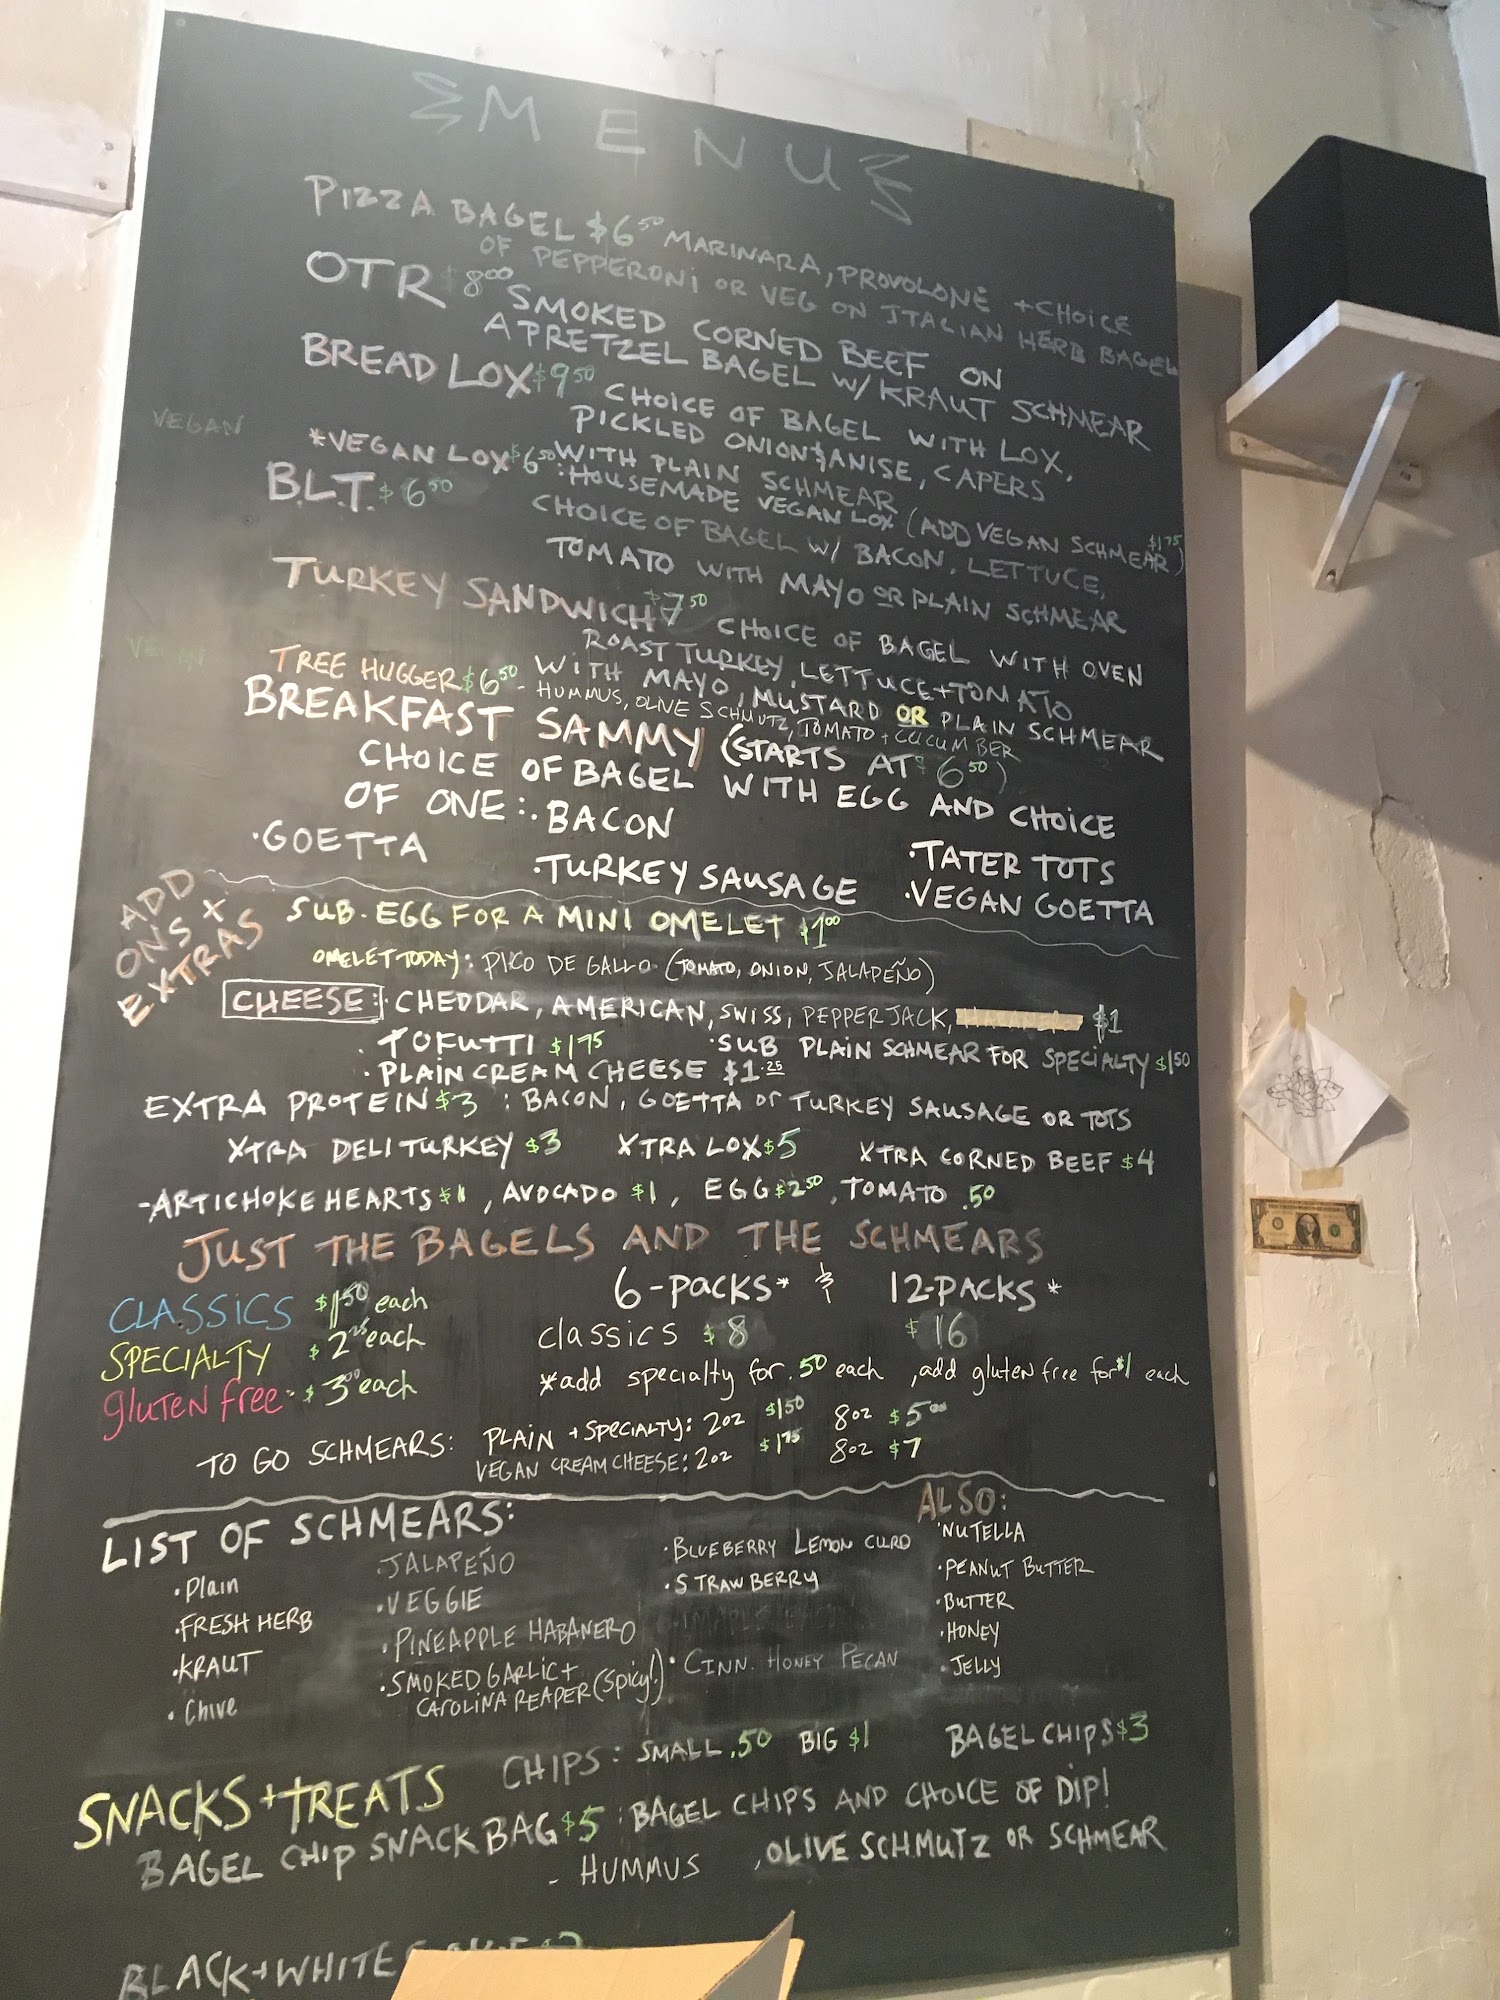 MENU
PIZZA BAGEL $6.50 MARINARA, PROVOLONE + CHOICE
OF PEPPERONI OR VEG ON ITALIAN HERB BAGEL
OTR $8.00 SMOKED CORNED BEEF ON
A PRETZEL BAGEL W/ KRAUT SCHMEAR
BREAD LOX $9.50 CHOICE OF BAGEL WITH LOX,
PICKLED ONION & ANISE, CAPERS
WITH PLAIN SCHMEAR
VEGAN
*VEGAN LOX $6.50: HOUSEMADE VEGAN LOX (ADD VEGAN SCHMEAR $1.75)
B.L.T. $6.50 CHOICE OF BAGEL W/ BACON, LETTUCE,
TOMATO WITH MAYO OR PLAIN SCHMEAR
TURKEY SANDWICH $7.50 CHOICE OF BAGEL WITH OVEN
ROAST TURKEY, LETTUCE + TOMATO
WITH MAYO, MUSTARD OR PLAIN SCHMEAR
VEGAN
TREE HUGGER $6.50 - HUMMUS, OLIVE SCHMUTZ, TOMATO + CUCUMBER
BREAKFAST SAMMY (STARTS AT $6.50)
CHOICE OF BAGEL WITH EGG AND CHOICE
OF ONE: · BACON
· GOETTA
· TURKEY SAUSAGE
· TATER TOTS
· VEGAN GOETTA
ADD
ONS X
EXTRAS
SUB. EGG FOR A MINI OMELET $1.00
OMELET TODAY: PICO DE GALLO (TOMATO, ONION, JALAPEÑO)
CHEESE: · CHEDDAR, AMERICAN, SWISS, PEPPERJACK, $1
· TOFUTTI $1.75 · SUB PLAIN SCHMEAR FOR SPECIALTY $1.50
· PLAIN CREAM CHEESE $1.25
EXTRA PROTEIN $3 : BACON, GOETTA or TURKEY SAUSAGE OR TOTS
XTRA DELI TURKEY $3 XTRA LOX $5 XTRA CORNED BEEF $4
- ARTICHOKE HEARTS $1, AVOCADO $1, EGG $2.50, TOMATO .50
JUST THE BAGELS AND THE SCHMEARS
6-PACKS* & 12-PACKS*
CLASSICS $1.50 each
SPECIALTY $2.25 each
gluten free - $3.00 each
classics $8 $16
*add specialty for .50 each, add gluten free for $1 each
TO GO SCHMEARS: PLAIN + SPECIALTY: 2oz $1.50 8oz $5.00
VEGAN CREAM CHEESE: 2oz $1.75 8oz $7
LIST OF SCHMEARS:
· Plain
· FRESH HERB
· KRAUT
· Chive
· JALAPEÑO
· VEGGIE
· PINEAPPLE HABANERO
· SMOKED GARLIC +
CAROLINA REAPER (Spicy!)
· BLUEBERRY LEMON CURD
· STRAWBERRY
· CINN. HONEY PECAN
ALSO:
· NUTELLA
· PEANUT BUTTER
· BUTTER
· HONEY
· JELLY
SNACKS + TREATS
CHIPS: SMALL .50 BIG $1 BAGEL CHIPS $3
BAGEL CHIP SNACK BAG $5 : BAGEL CHIPS AND CHOICE OF DIP!
- HUMMUS , OLIVE SCHMUTZ OR SCHMEAR
BLACK + WHITE